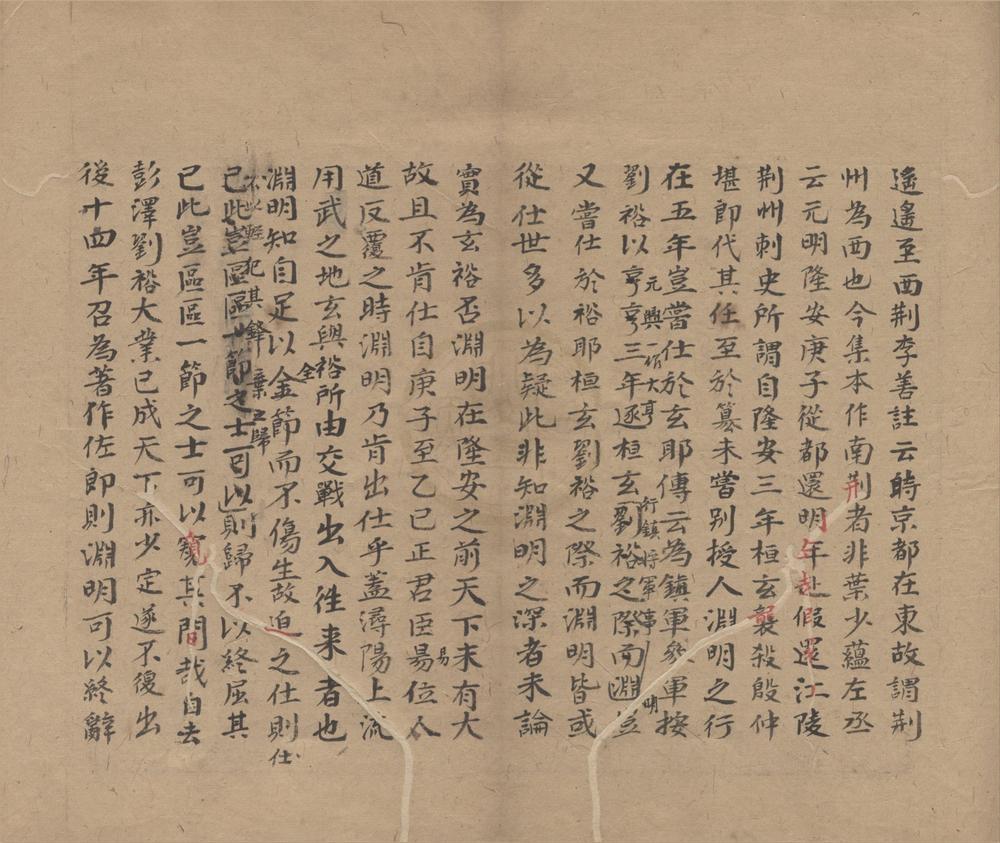 遙遙至西荆李善註云時京都在東故謂荆
州為西也今集本作南荆者非葉少蘊左丞
云元明隆安庚子從都還明年赴假還江陵
荆州刺史所謂自隆安三年桓玄襲殺殷仲
堪即代其任至於篡未嘗别授人淵明之行
在五年豈嘗仕於玄耶傳云為鎮軍叅軍按
行鎮將軍事
劉裕以元興三年逐桓玄劉裕之際而淵豈
元興一作大亨
明
又嘗仕於裕耶桓玄劉裕之際而淵明皆或
從仕世多以為疑此非知淵明之深者未論
實為玄裕否淵明在隆安之前天下未有大
故且不肯仕自庚子至乙巳正君臣易位人
易
道反覆之時淵明乃肯出仕乎蓋潯陽上流
用武之地玄與裕所由交戰出入徃来者也
全
淵明知自足以金節而不傷生故迫之仕則仕
不以輕犯其鋒棄之歸
己此豈區區一節之士可以則歸不以終屈其
已此豈區區一節之士可以窺其間哉自去
彭澤劉裕大業已成天下亦少定遂不復出
後十四年召為著作佐郎則淵明可以終辭